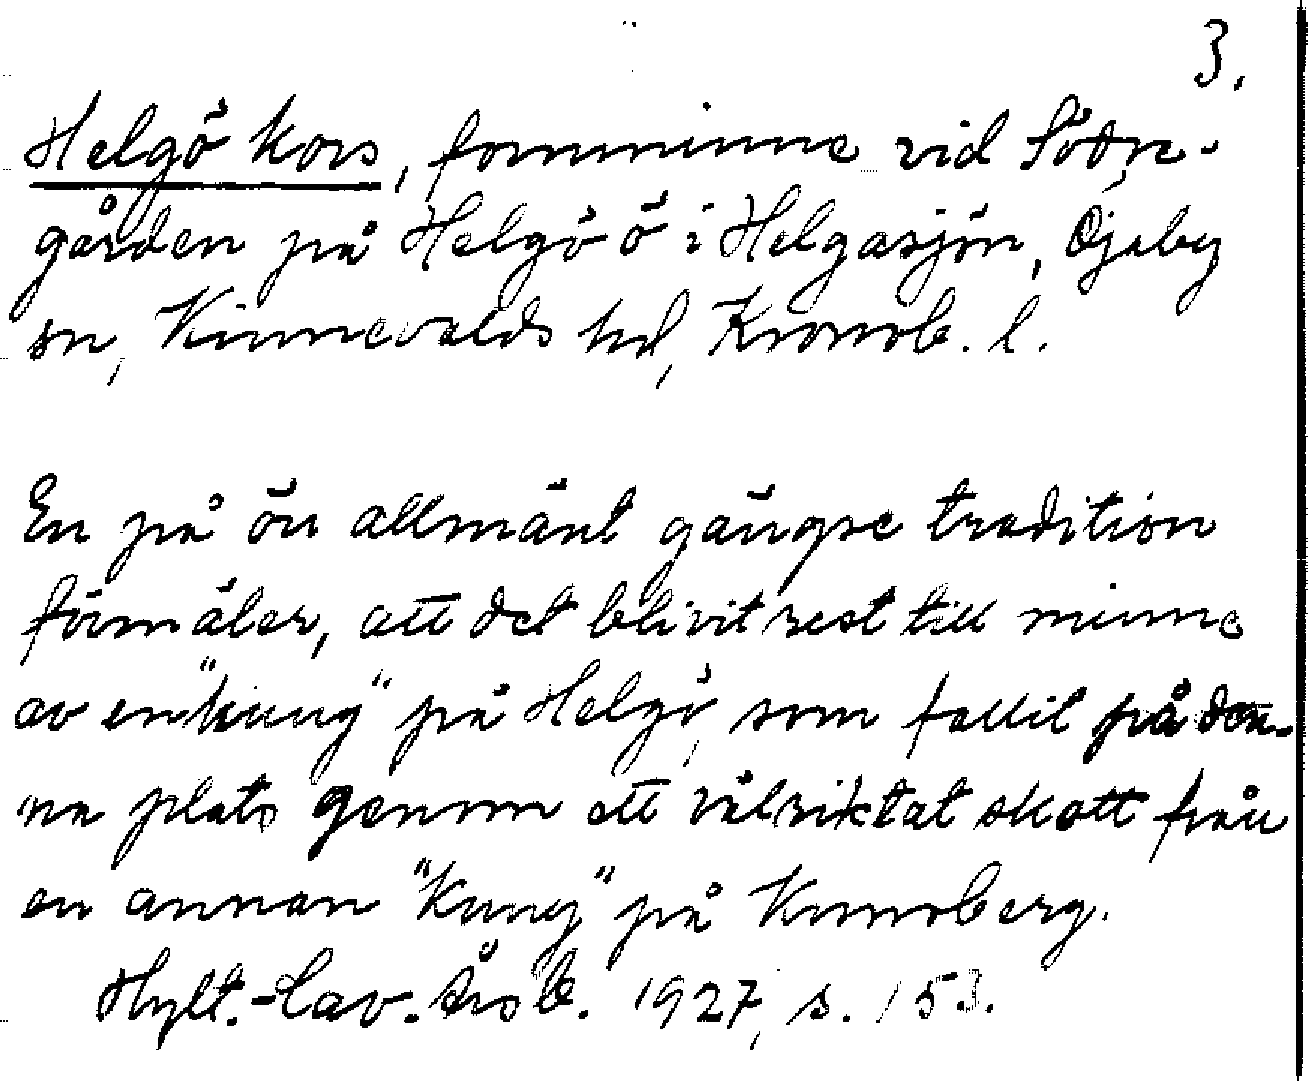 3.
Helgö kors, fornminne vid Södre-
gården på Helgö ö i Helgasjön, Öjaby
sn, Kinnevalds hd, Kronob. l.
En på ön allmänt gängse tradition
förmäler, att det blivit rest till minne
av en "kung" på Helgö, som fallit på den-
na plats genom ett välriktat skott från
en annan "Kung" på Kronoberg.
Hylt.-Cav. Årsb. 1927, s. 153.